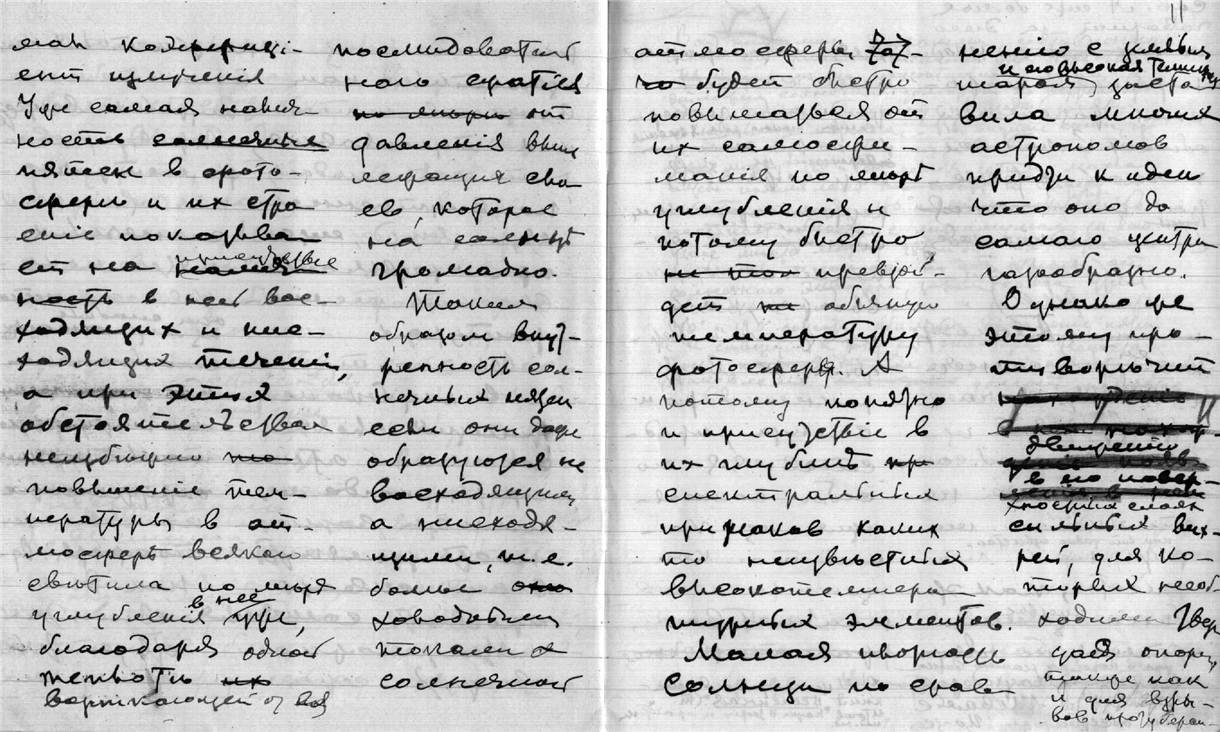 мал коэффиці-
ент излученія
Уже самая наличность солнечных
пятен в фото-
сфере и их стро
еніе показыва
ет на присутствіе
в ней вос-
ходящих и нис-
ходящих теченій,
а при этих
обстоятельствах
неизбежно то
повышеніе тем-
пературы в ат-
мосфере всякаго
светила по мере
углубленія в нее
уже,
благодаря одной
вытекающей от нея
последователь
наго сжатія
по мере от
давленія выше
лежащих сло
ев, которое
на солнце
громадно.
Таким
образом внут-
ренность сол-
нечных пятен
если они даже
образуются не
восходящими,
а нисходя-
щими, т. е.
более
холодными
токами
солнечной
атмосферы,
будет быстро
повышаться от
их самосжи-
манія по мере
углубленія и
потому быстро
не то превзой-
дет обычную
температуру
фотосферы. А
потому понятно
и присутствіе в
их глубине
спектральных
признаков каких
то неизвестных
высокотемпера-
турных элементов.
Малая плотность
Солнца по срав
11
нению с землей
и его высокая температура
заста
вила многих
астрономов
придти к идеи
что оно до
самаго центра
газообразно.
Однако же
этому про-
тиворечит
движеніе
в его поверх-
хностных слоях
сильных вих-
рей, для ко-
торых необ
ходима твер
дая опора,
также как
и для взры-
вов протуберан-